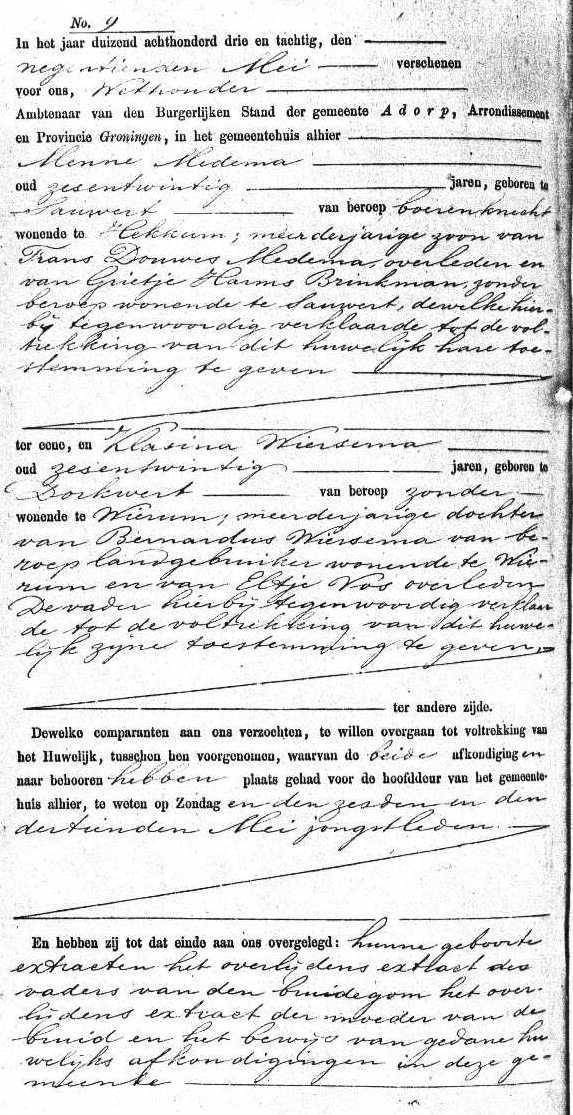 No. 9
In het jaar duizend achthonderd drie en tachtig, den
negentienden Mei verschenen
voor ons, Wethouder
Ambtenaar van den Burgerlijken Stand der gemeente Adorp, Arrondissement
en Provincie Groningen, in het gemeentehuis alhier
Menne Medema
oud zesentwintig jaren, geboren te
Sauwert van beroep boerenknecht
wonende te Hekkum; meerderjarige zoon van
Frans Douwes Medema, overleden en
van Grietje Harms Brinkman, zonder
beroep wonende te Sauwert, dewelke hier-
bij tegenwoordig verklaarde tot de vol-
trekking van dit huwelijk hare toe-
stemming te geven
ter eene, en Klasina Wiersema
oud zesentwintig jaren, geboren te
Dorkwert van beroep zonder
wonende te Wierum; meerderjarige dochter
van Bernardus Wiersema van be-
roep landgebruiker wonende te Wie-
rum en van Eltje Vos overleden
De vader hierbij tegenwoordig verklaar
de tot de voltrekking van dit huwe-
lijk zijne toestemming te geven,
ter andere zijde.
Dewelke comparanten aan ons verzochten, te willen overgaan tot voltrekking van
het Huwelijk, tusschen hen voorgenomen, waarvan de beide afkondigingen
naar behooren hebben plaats gehad voor de hoofddeur van het gemeente-
huis alhier, te weten op Zondag en den zesden en den
dertienden Mei jongstleden.
En hebben zij tot dat einde aan ons overgelegd: hunne geboorte
extracten het overlijdens extract des
vaders van den bruidegom het over-
lijdens extract der moeder van de
bruid en het bewijs van gedane hu
welijks afkondigingen in deze ge-
meente